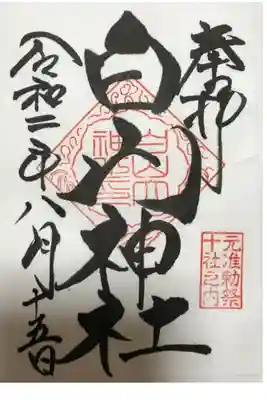 奉拝
元准勅祭
十社之内
白山神社
令和二年八月十五日